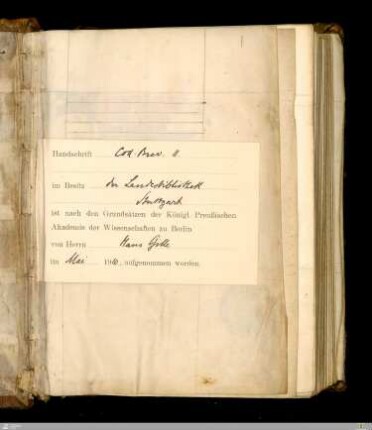 Handschrift Cod. Brev. 8.
im Besitz der Landesbibliothek
Stuttgart
ist nach den Grundsätzen der Königl. Preußischen
Akademie der Wissenschaften zu Berlin
von Herrn Hans
im Mai 19 , aufgenommen worden.